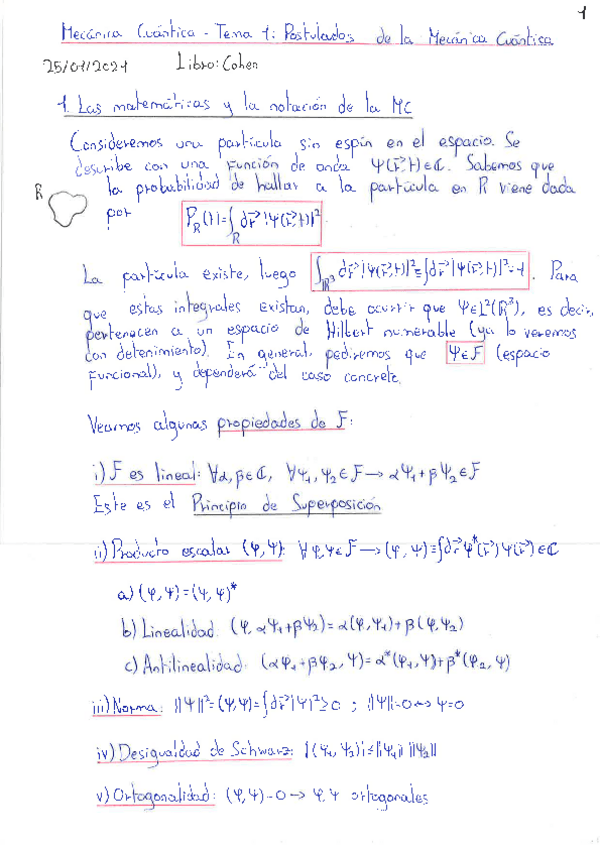 1
Mecánica Cuántica - Tema 1: Postulados de la Mecánica Cuántica
25/01/2021 Libro: Cohen
1. Las matemáticas y la notación de la MC
Consideremos una partícula sin espín en el espacio. Se
describe con una función de onda Ψ(r⃗,t)∈ℂ. Sabemos que
la probabilidad de hallar a la partícula en R viene dada
R
por P_R(t)=∫_R dr⃗ |Ψ(r⃗,t)|²
La partícula existe, luego ∫_ℝ³ dr⃗ |Ψ(r⃗,t)|²≡∫dr⃗ |Ψ(r⃗,t)|²=1. Para
que estas integrales existan, debe ocurrir que Ψ∈L²(ℝ³), es decir,
pertenecen a un espacio de Hilbert numerable (ya lo veremos
con detenimiento). En general, pediremos que Ψ∈F (espacio
funcional), y dependerá del caso concreto.
Veamos algunas propiedades de F:
i) F es lineal: ∀α,β∈ℂ, ∀Ψ₁,Ψ₂∈F→αΨ₁+βΨ₂∈F
Este es el Principio de Superposición
ii) Producto escalar (φ,Ψ): ∀φ,Ψ∈F→(φ,Ψ)≡∫dr⃗ φ*(r⃗)Ψ(r⃗)∈ℂ
a) (φ,Ψ)=(Ψ,φ)*
b) Linealidad: (φ,αΨ₁+βΨ₂)=α(φ,Ψ₁)+β(φ,Ψ₂)
c) Antilinealidad: (αφ₁+βφ₂,Ψ)=α*(φ₁,Ψ)+β*(φ₂,Ψ)
iii) Norma: ||Ψ||²=(Ψ,Ψ)=∫dr⃗ |Ψ|²≥0 ; ||Ψ||=0↔Ψ=0
iv) Desigualdad de Schwarz: |(Ψ₁,Ψ₂)|≤||Ψ₁|| ||Ψ₂||
v) Ortogonalidad: (φ,Ψ)=0→φ,Ψ ortogonales